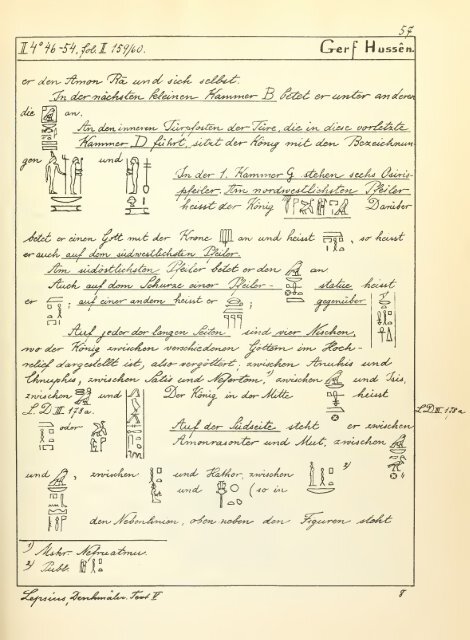 57
II 4° 46-54, fol. II 159/60.
Gerf Hussên.
er den Amon Rā und sich selbst.
In der nächsten kleinen Kammer B betet er unter anderen
die an.
An den inneren Türpfosten der Türe, die in diese vorletzte
Kammer D führt, sitzt der König mit den Bezeichnun-
gen und
In der 1. Kammer G stehen sechs Osiris-
pfeiler. Am nordwestlichsten Pfeiler
heisst der König Darüber
betet er einen Gott mit der Krone an und heisst , so heisst
er auch auf dem südwestlichsten Pfeiler.
Am südöstlichsten Pfeiler betet er den an
Auch auf dem Schurze einer Pfeiler- statue heisst
er ; auf einer andern heisst er ; gegenüber
Auf jeder der langen Seiten sind vier Nischen,
wo der König zwischen verschiedenen Göttern im Hoch-
relief dargestellt ist, also vergöttert, zwischen Anukis und
Chnuphis, zwischen Satis und Nofertem, zwischen und Isis,
zwischen und Der König in der Mitte heisst
L.D. III. 178a.
L.D. III. 178a
oder Auf der Südseite steht er zwischen
Amonrasonter und Mut, zwischen
und , zwischen und Hathor, zwischen 2)
und (so in
den Nebenlinien, oben neben den Figuren steht
1) Mskr. Nefruatmu.
2) Publ.
Lepsius, Denkmäler. Text V
8